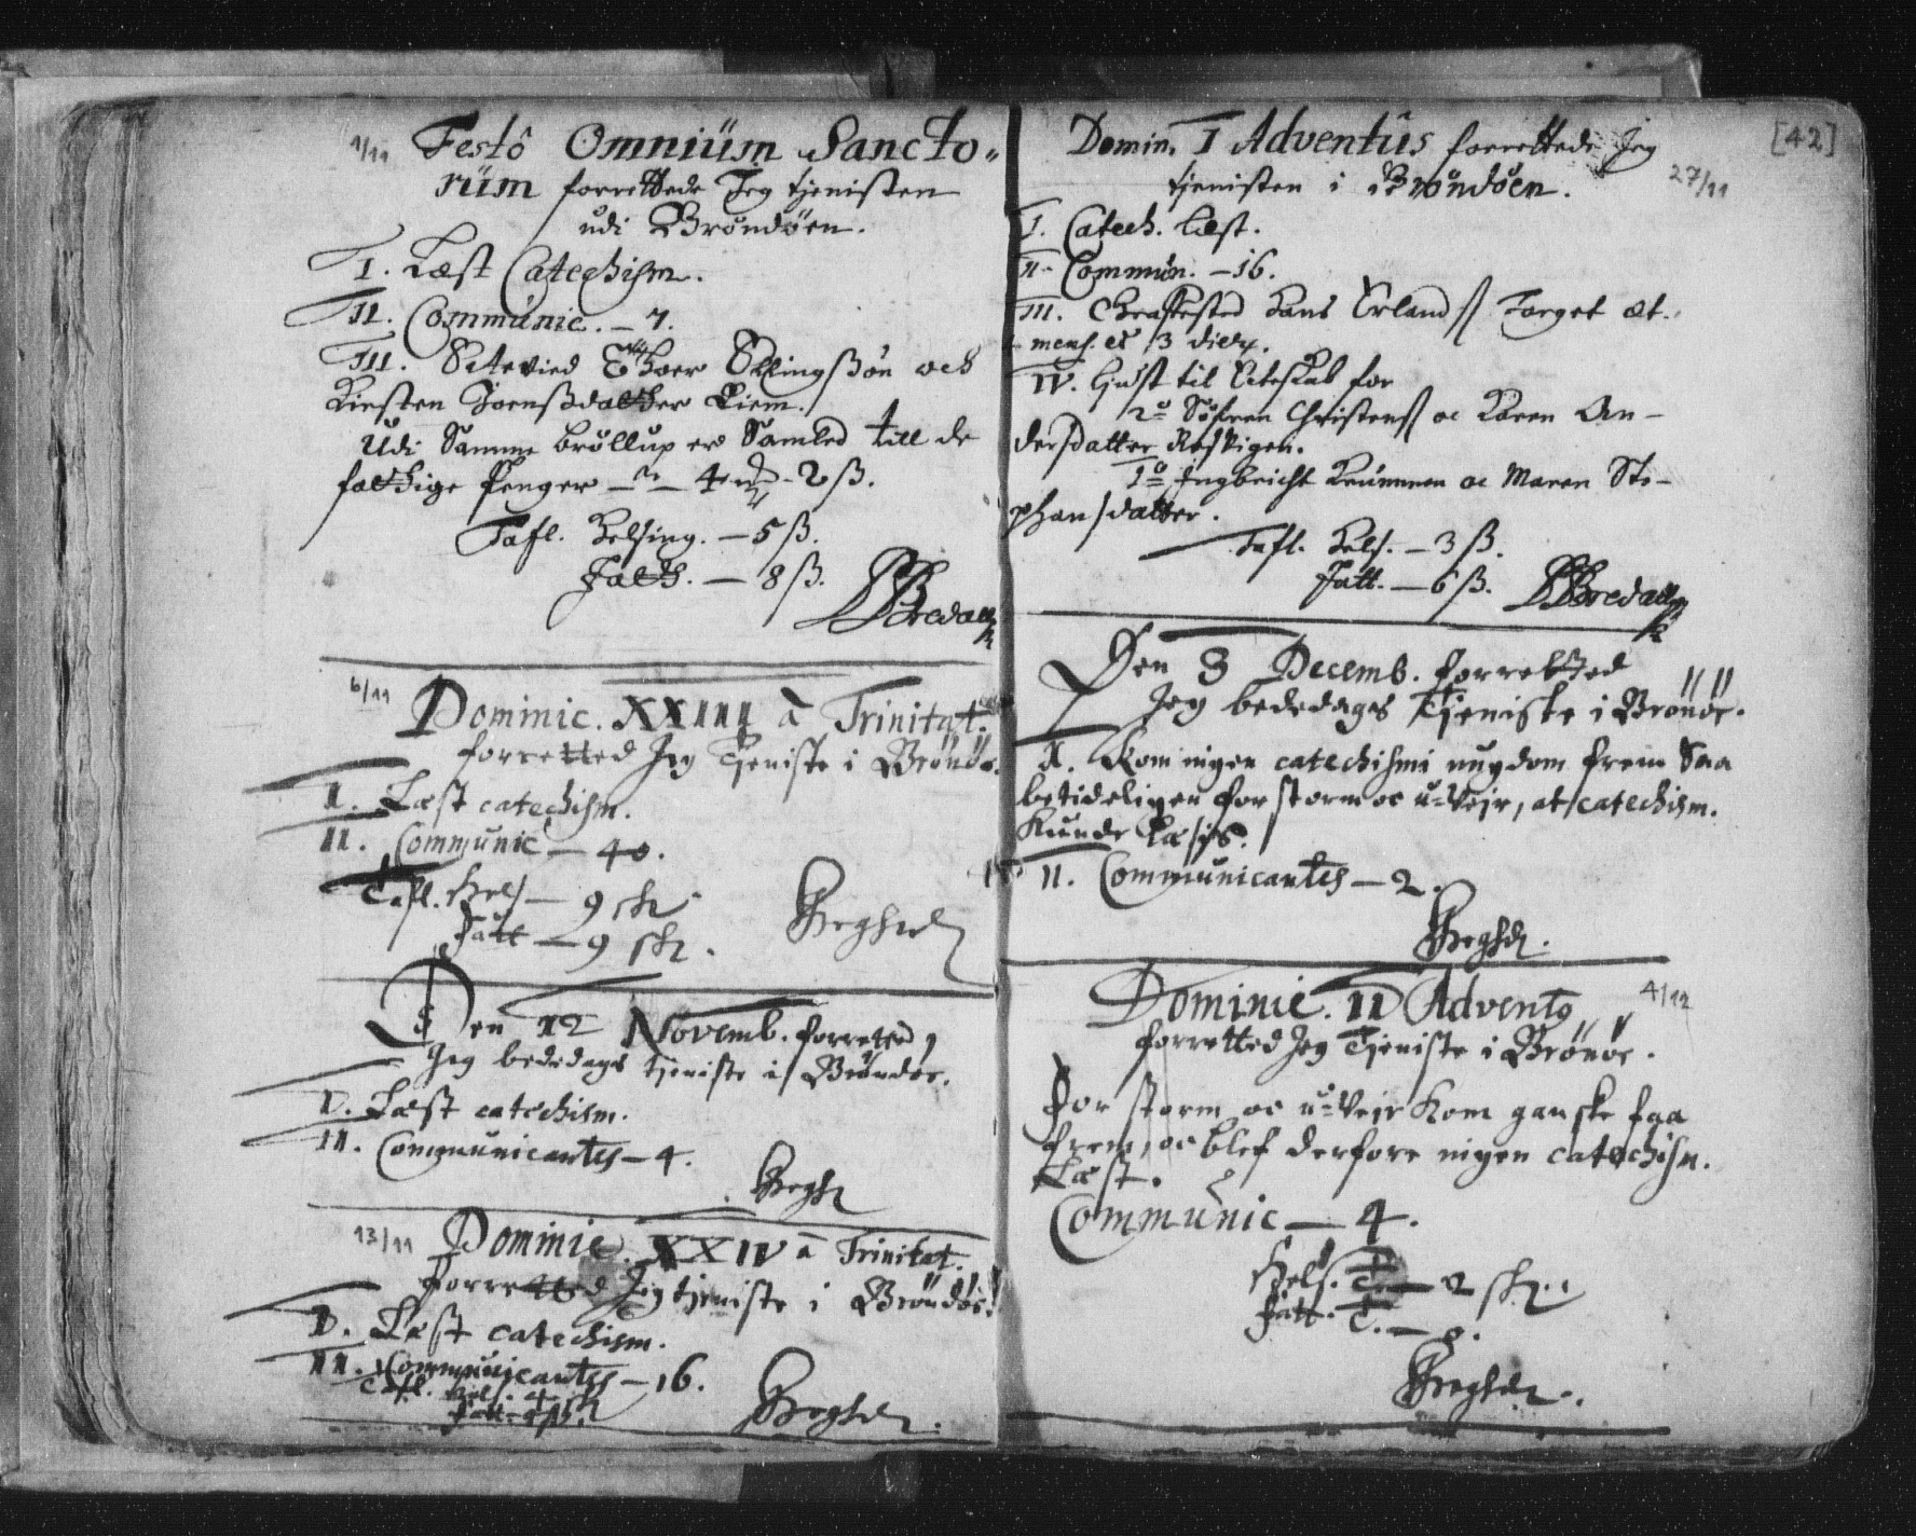 1/11 Festô Omniüm Sancto=
rüm forrettede Jeg tjenisten
udi Brøndøen.
I. Læst Catechism.
II. Communic. – 7.
III. Ectevied Ellingßøn och
Kirsten Joenßdatther Riem.
Udi Samme brøllup er Samled till de
fatthige Penger – 4 – 2 ß.
Tafl. Helsing. – 5 ß.
Fatth. – 8 ß.
Bredall
6/11 Dominic. XXIII à Trinitat.
forretted Jeg Tjeniste i Brønöe.
I. Læst catechism.
II. Communic – 40.
Tafl. Hels – 9 sk
Fatt – 9 sk.
Den 12 Novemb. forretted
Jeg bededags tjeniste i Brøndöe.
I. Læst catechism.
II. Communicantes – 4.
13/11 Dominic. XXIV à Trinitat.
forretted Jeg tjeniste i Brøndöe.
I. Læst catechism.
II. Communicantes – 16.
Tafl. Hels. 4 sk
Fatt
[42]
Domin. I Adventûs forrettede Jeg
tjenisten i Brøndøen. 27/11
I. Catech. læst.
II. Commun. – 16.
III. Hans Erlands Torget æt.
mens. et 3 dier.
IV. liust til Ecteskab for
2º Søfren Christens oc Karen An-
dersdatter
1º Ingbricht oc Maren Ste-
phansdatter.
Tafl. Hels. – 3 ß.
Fatt. – 6 ß. Bredall
Den 3 Decemb. forretted
Jeg bededags Tjeniste i Brönöe.
I. Kom ingen catechismi ungdom frem Saa
betideligen for storm oc u-Veir, at catechism.
Kunde læsis.
II. Communicantes – 2.
Dominic. II Advents 4/12
forretted Jeg Tjeniste i Brönöe.
For storm oc u-Veir Kom ganske faa
frem, oc blef derfore ingen catechism.
Læst.
Communic – 4.
Hels. T. – 2 sk.
Fatt. T. –